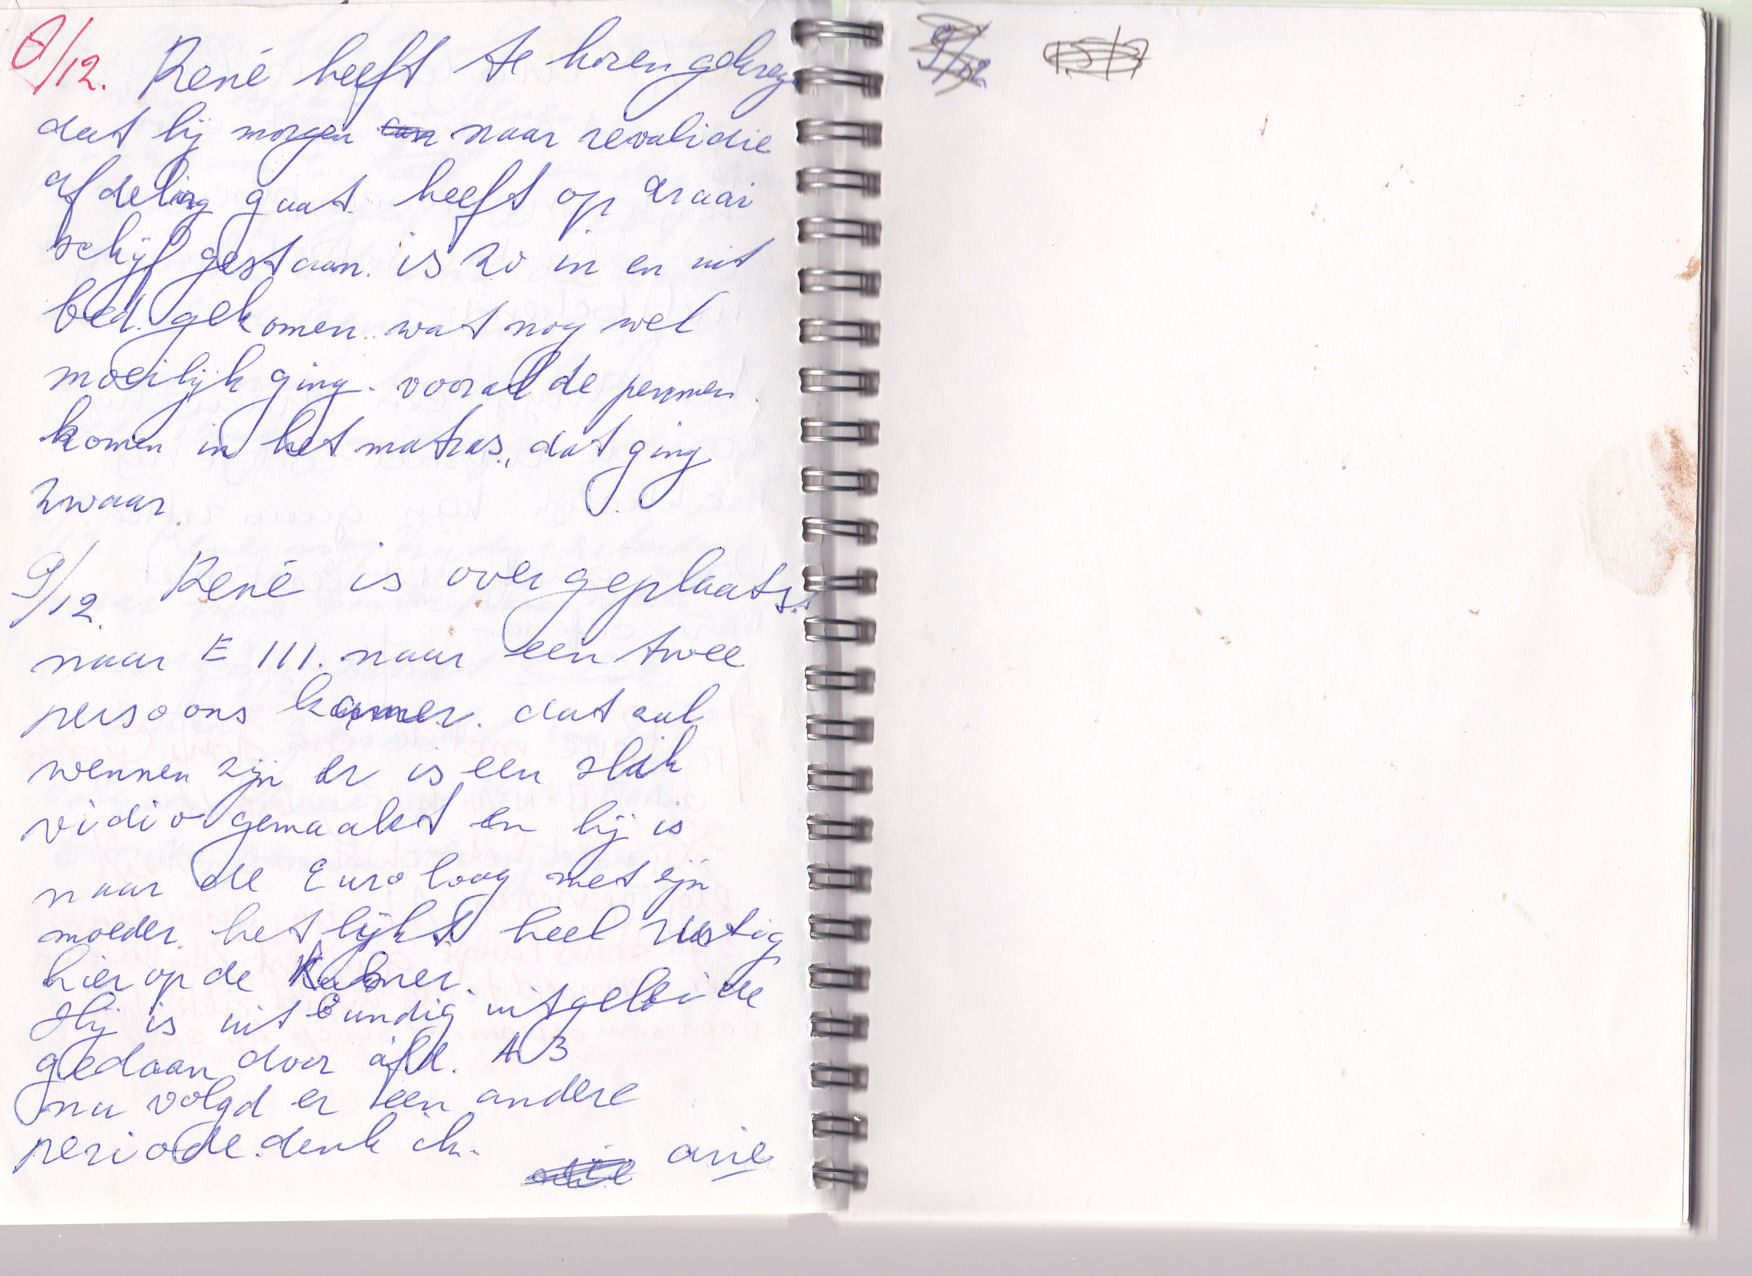 8/12. René heeft te horen gekreg
dat hij morgen naar revalidie
afdeling gaat. heeft op draai
schijf gestaan. is zo in en uit
bed. gekomen. wat nog wel
moeilijk ging. vooral de
komen in het matras, dat ging
zwaar.
9/12. René is overgeplaatst
naar E III. naar een twee
persoons kamer. dat zal
wennen zijn er is een slik
vidio gemaakt en hij is
naar de Euroloog met zijn
moeder. het lijkt heel rustig
hier op de kamer.
Hij is uitbundig uitgeleide
gedaan door afd. A3
nu volgd er een andere
periode. denk ik.
arie
9/12